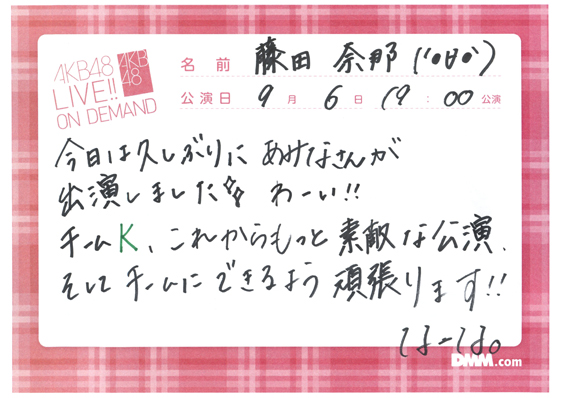 AKB48
LIVE!!
ON DEMAND
AKB
48
名前 藤田 奈那
公演日 9月 6日 19:00 公演
今日は久しぶりに あみなさんが
出演しました☆☆ わーい!!
チームK、これからもっと 素敵な公演、
そして チームに できるよう 頑張ります!!
DMM.com